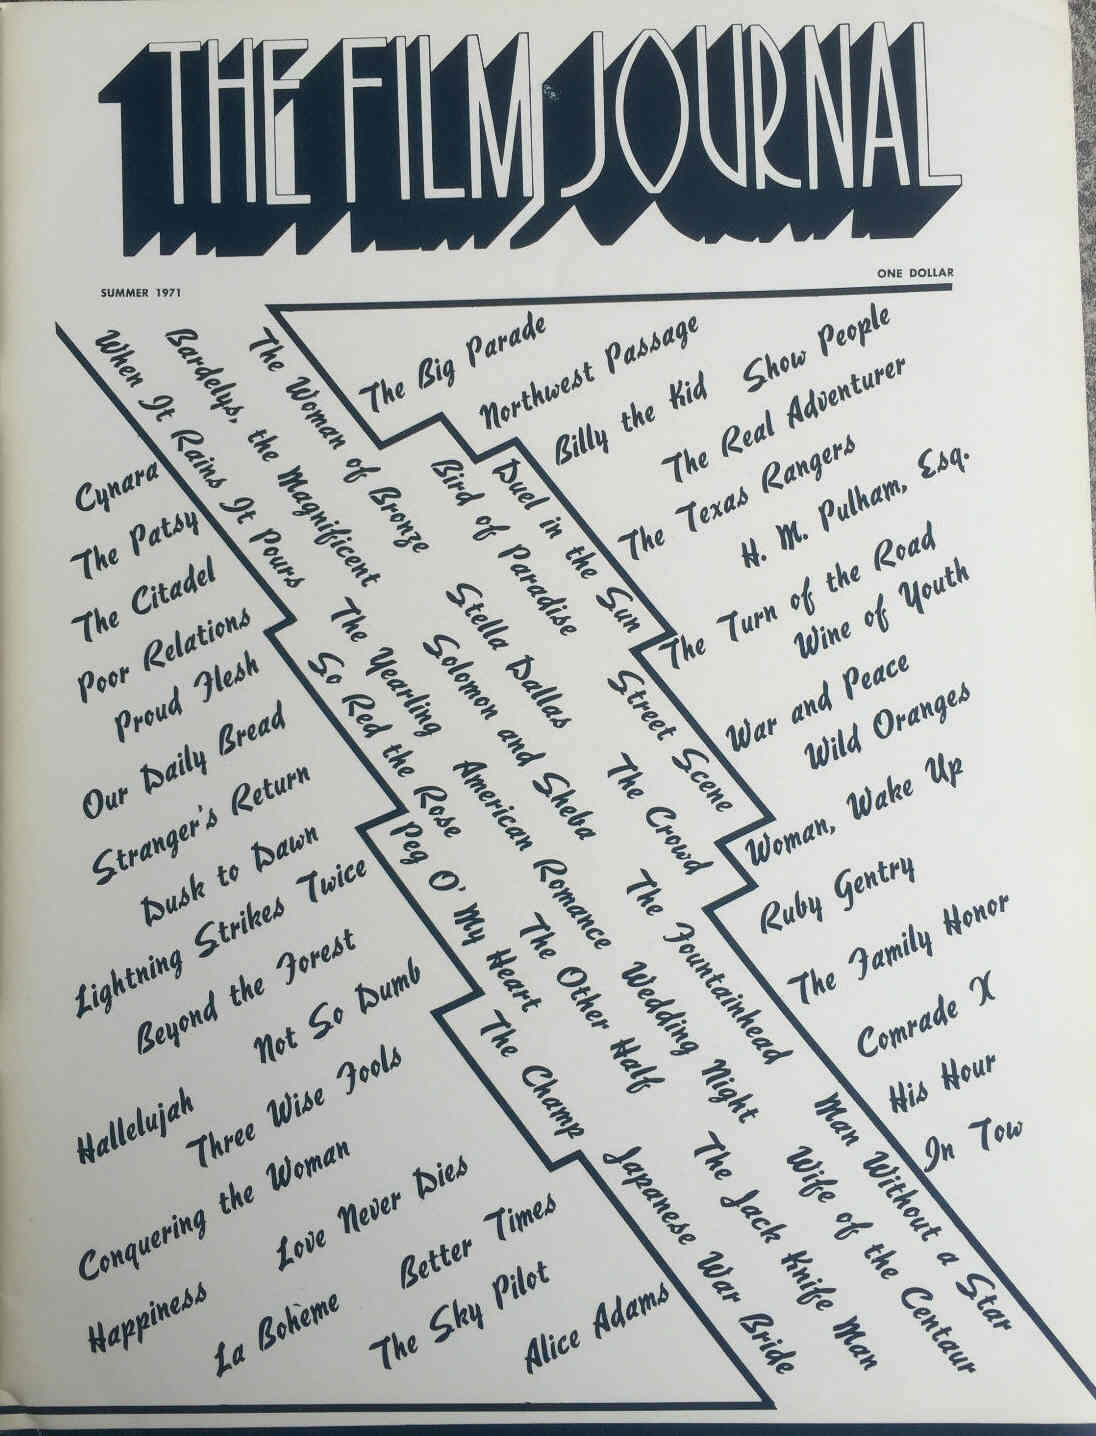 THE FILM JOURNAL
SUMMER 1971
ONE DOLLAR
The Big Parade
Northwest Passage
Billy the Kid
Show People
The Real Adventurer
The Texas Rangers
H. M. Pulham, Esq.
The Turn of the Road
Wine of Youth
War and Peace
Wild Oranges
Woman, Wake Up
Ruby Gentry
The Family Honor
Comrade X
His Hour
In Tow
When It Rains It Pours
Bardelys, the Magnificent
The Woman of Bronze
Bird of Paradise
Duel in the Sun
So Red the Rose
The Yearling
Solomon and Sheba
Stella Dallas
Street Scene
Peg O' My Heart
American Romance
The Crowd
The Other Half
Wedding Night
The Fountainhead
The Champ
Japanese War Bride
The Jack Knife Man
Wife of the Centaur
Man Without a Star
Cynara
The Patsy
The Citadel
Poor Relations
Proud Flesh
Our Daily Bread
Stranger's Return
Dusk to Dawn
Lightning Strikes Twice
Beyond the Forest
Not So Dumb
Hallelujah
Three Wise Fools
Conquering the Woman
Love Never Dies
Happiness
Better Times
La Bohème
The Sky Pilot
Alice Adams